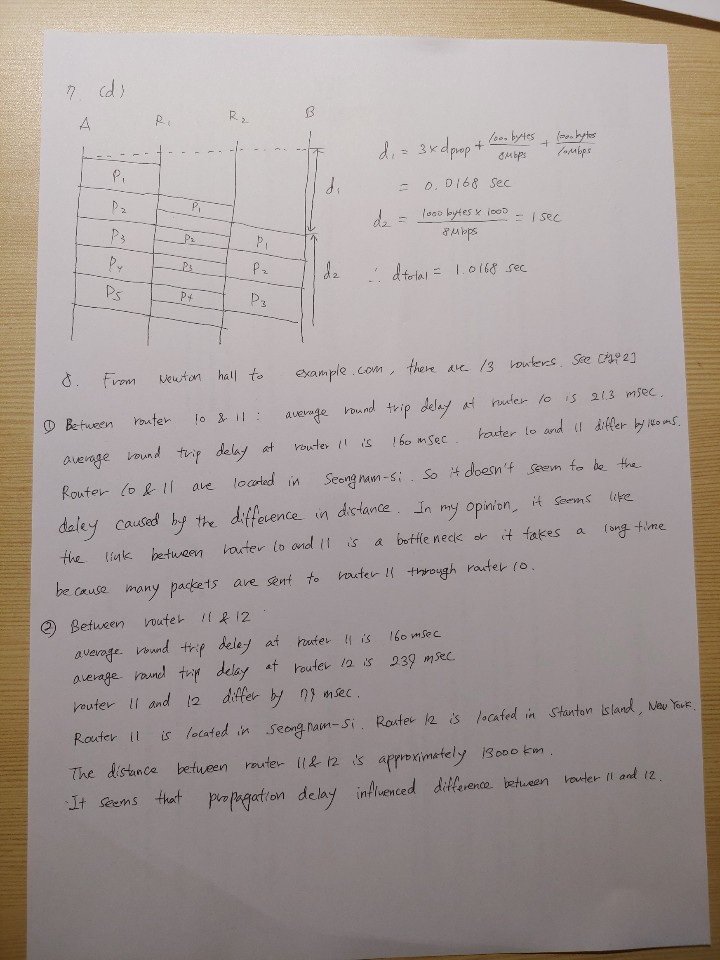 7. (d)
A R1 R2 B
P1
P2 P1
P3 P2 P1
P4 P3 P2
P5 P4 P3
d1
d2
d1 = 3×dprop + 1000 bytes/8Mbps + 1000 bytes/10Mbps
= 0.0168 sec
d2 = 1000 bytes × 1000/8Mbps = 1 sec
∴ dtotal = 1.0168 sec
8. From Newton hall to example.com, there are 13 routers. See [2]
① Between router 10 & 11 : average round trip delay at router 10 is 21.3 msec.
average round trip delay at router 11 is 160 msec. router 10 and 11 differ by 140 ms.
Router 10 & 11 are located in Seongnam-si. So it doesn't seem to be the
delay caused by the difference in distance. In my opinion, it seems like
the link between router 10 and 11 is a bottleneck or it takes a long time
because many packets are sent to router 11 through router 10.
② Between router 11 & 12
average round trip delay at router 11 is 160 msec
average round trip delay at router 12 is 239 msec
router 11 and 12 differ by 79 msec.
Router 11 is located in Seongnam-si. Router 12 is located in Stanton Island, New York.
The distance between router 11 & 12 is approximately 13000 km.
It seems that propagation delay influenced difference between router 11 and 12.